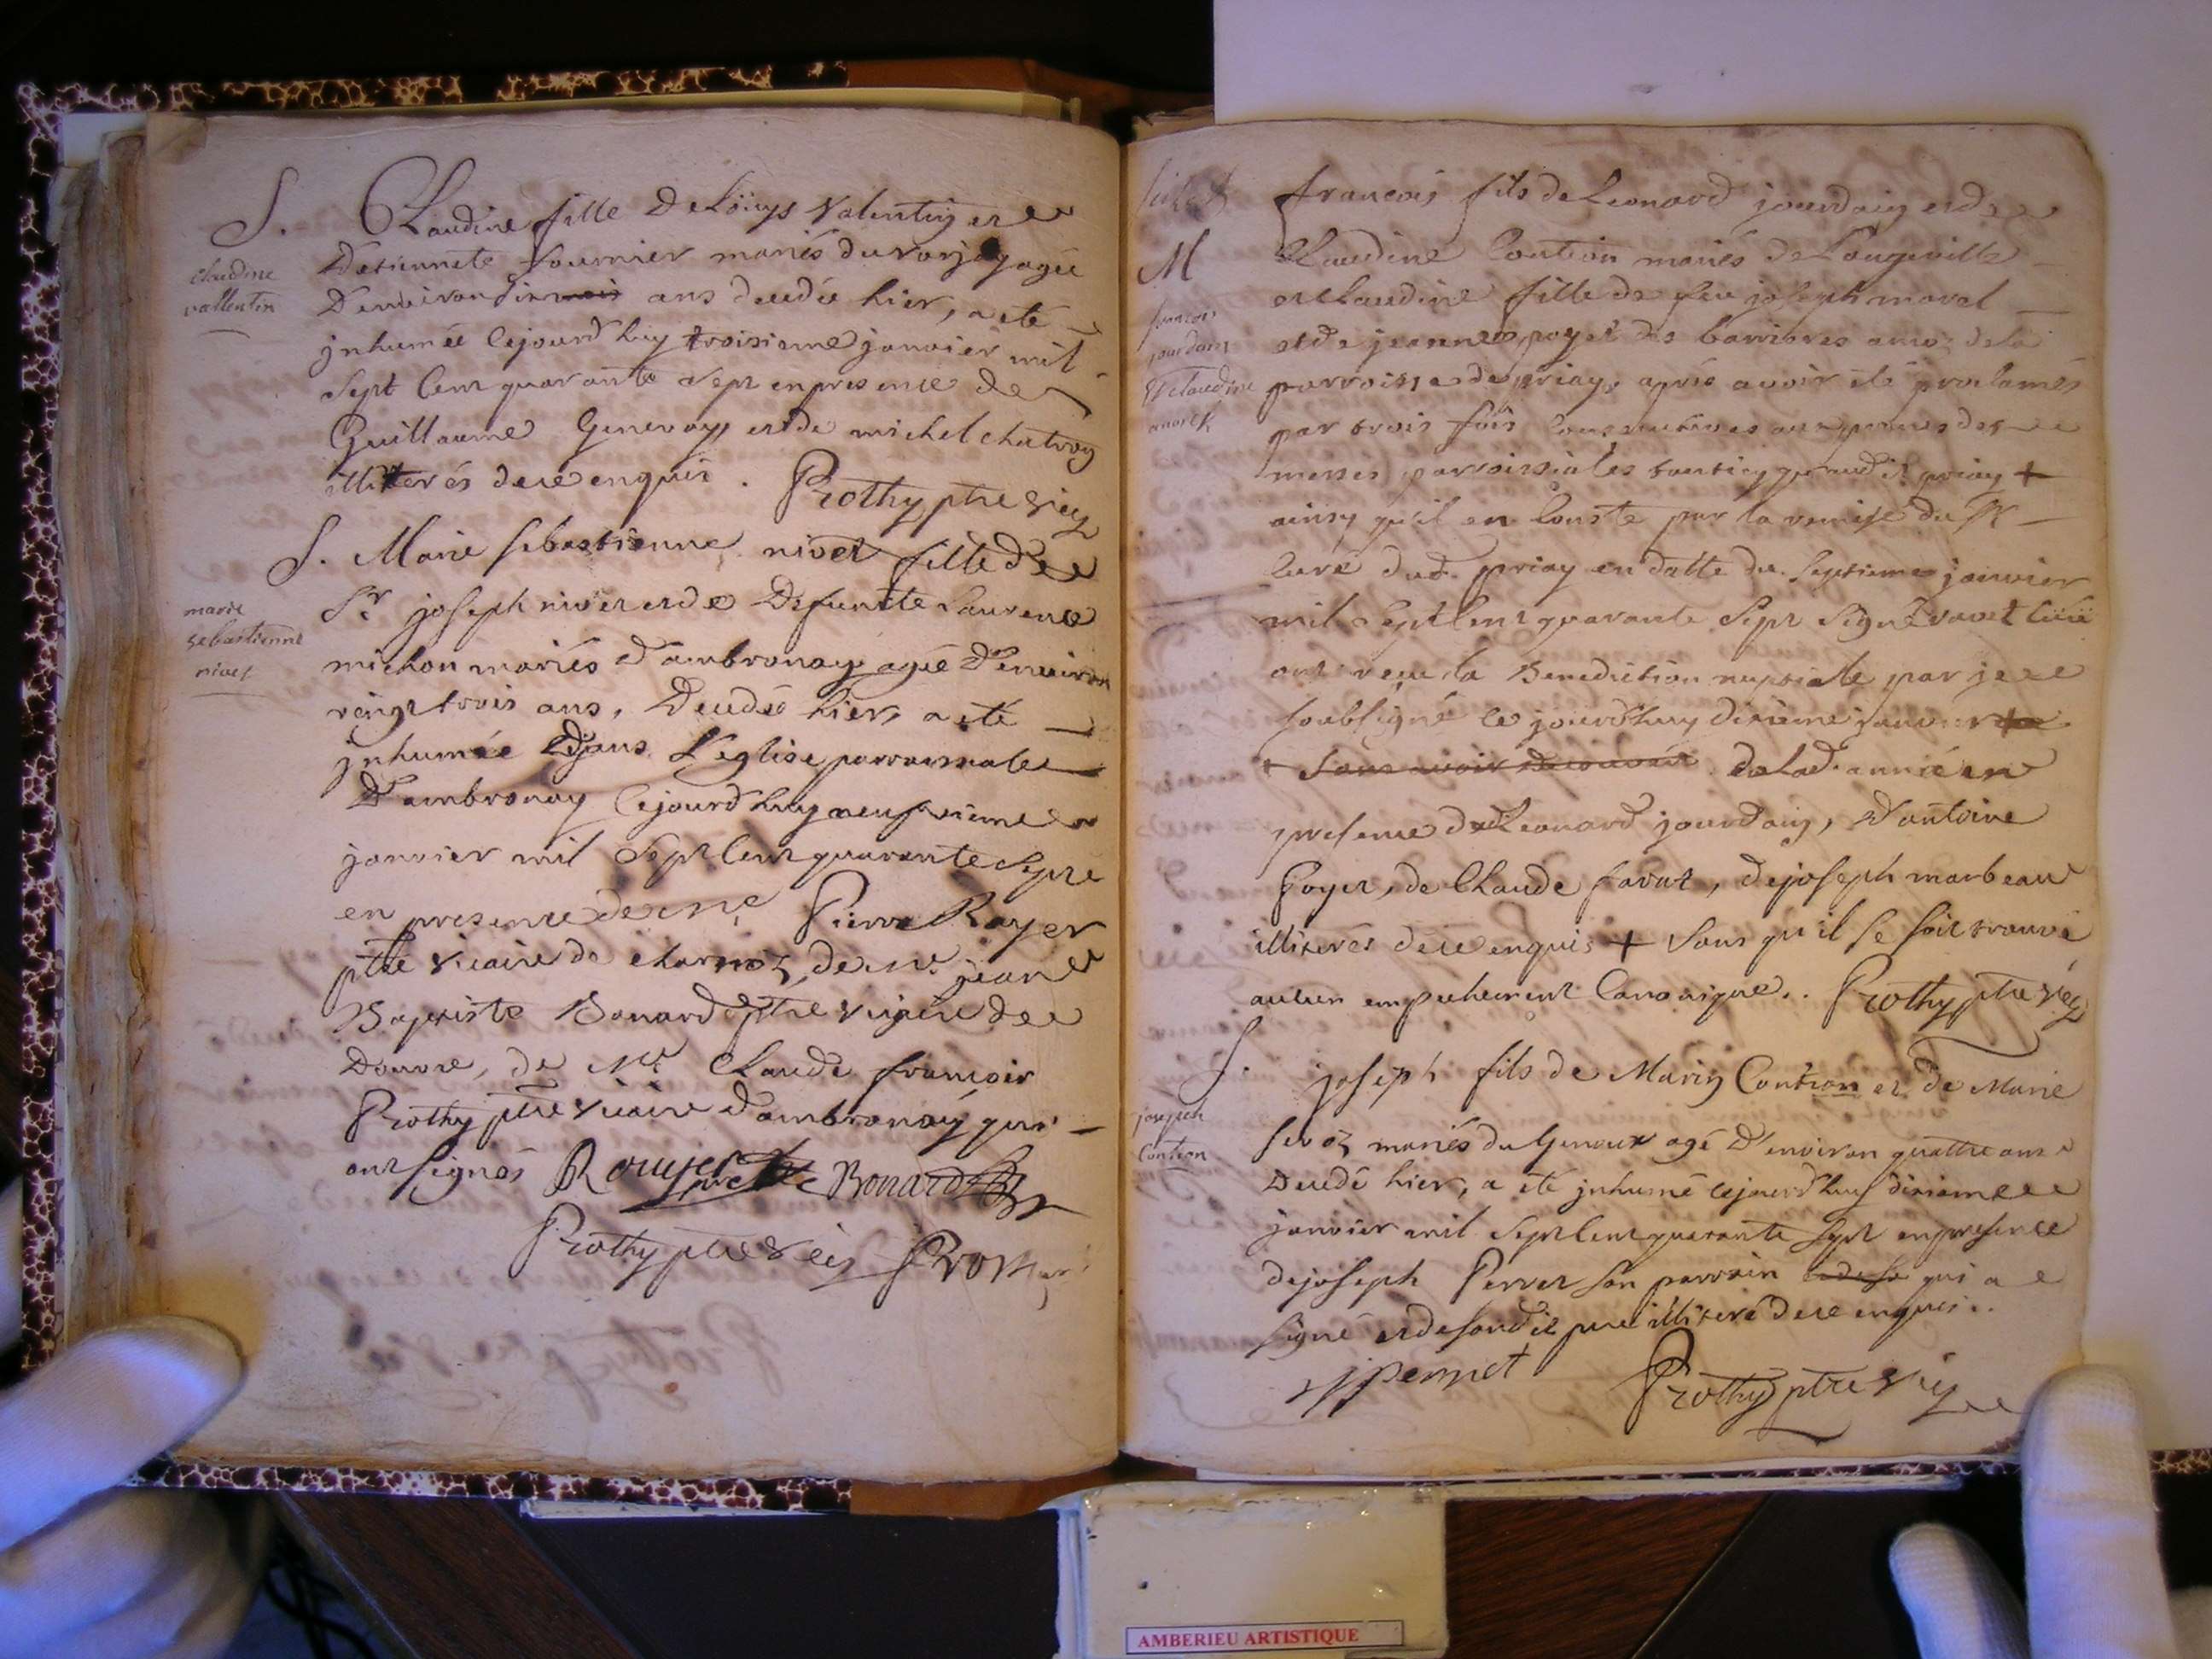 S.
claudine
vallentin
Claudine fille de Loüys Valentin et
d'etiennete fournier mariés du agée
d'environ six mois ans decedée hier, a eté
jnhumée cejourd'huy troisieme janvier mil
sept cent quarante sept en presence de
Guillaume Genevay et de michel chatron
illiterés de ce enquis. Prothy ptre vic
S. Marie sebastienne nivet fille de
marie
sebastienne
nivet
Sr joseph nivet et de defuncte Laurence
michon mariés d'ambronay agée d'environ
vingt trois ans, decedée hier, a eté
jnhumée dans L'eglise parroissiale
d'ambronay cejourd'huy neufvieme
janvier mil sept cent quarante sept
en presence de Me Pierre Royer
ptre vicaire de charnoz, de Me jean
Baptiste Bonard ptre vicaire de
Douvre, de Mre Claude françois
Prothy ptre vicaire d'ambronay qui
ont signés Bonard
Prothy ptre vic
M
francois
jourdain
et claudine
francois fils de Leonard jourdain et de
Claudine Contion mariés de Longeville
et Claudine fille de feu joseph morel
et de jeanne poyet des barrieres de la
parroisse de priay, aprés avoir été proclamés
par trois fois consecutives aux prones des
messes parroissiales tant icy qu'audit priay +
ainsy qu'il en conste par la remise du Sr
curé dud. priay en datte du septieme janvier
mil sept cent quarante sept signé ravet curé
ont reçu la Benediction nuptiale par je
soubsigné ce jourd'huy dixieme janvier
+ sans avoir decouvert de lad. année en
presence de Leonard jourdain, d'antoine
Poyet, de Claude favat, de joseph marbeau
illiterés de ce enquis + sans qu'il se soit trouvé
aucun empechement Canonique.. Prothy ptre vic
S.
joseph
Contion
joseph fils de Marin Contion et de Marie
mariés du Genoux agé d'environ quattre ans
decedé hier, a eté jnhumé cejourd'huy dixieme
janvier mil sept cent quarante sept en presence
de joseph Perret son parrain et de so qui a
signé et de sondit pere illiteré de ce enquis..
Prothy ptre vic
AMBERIEU ARTISTIQUE